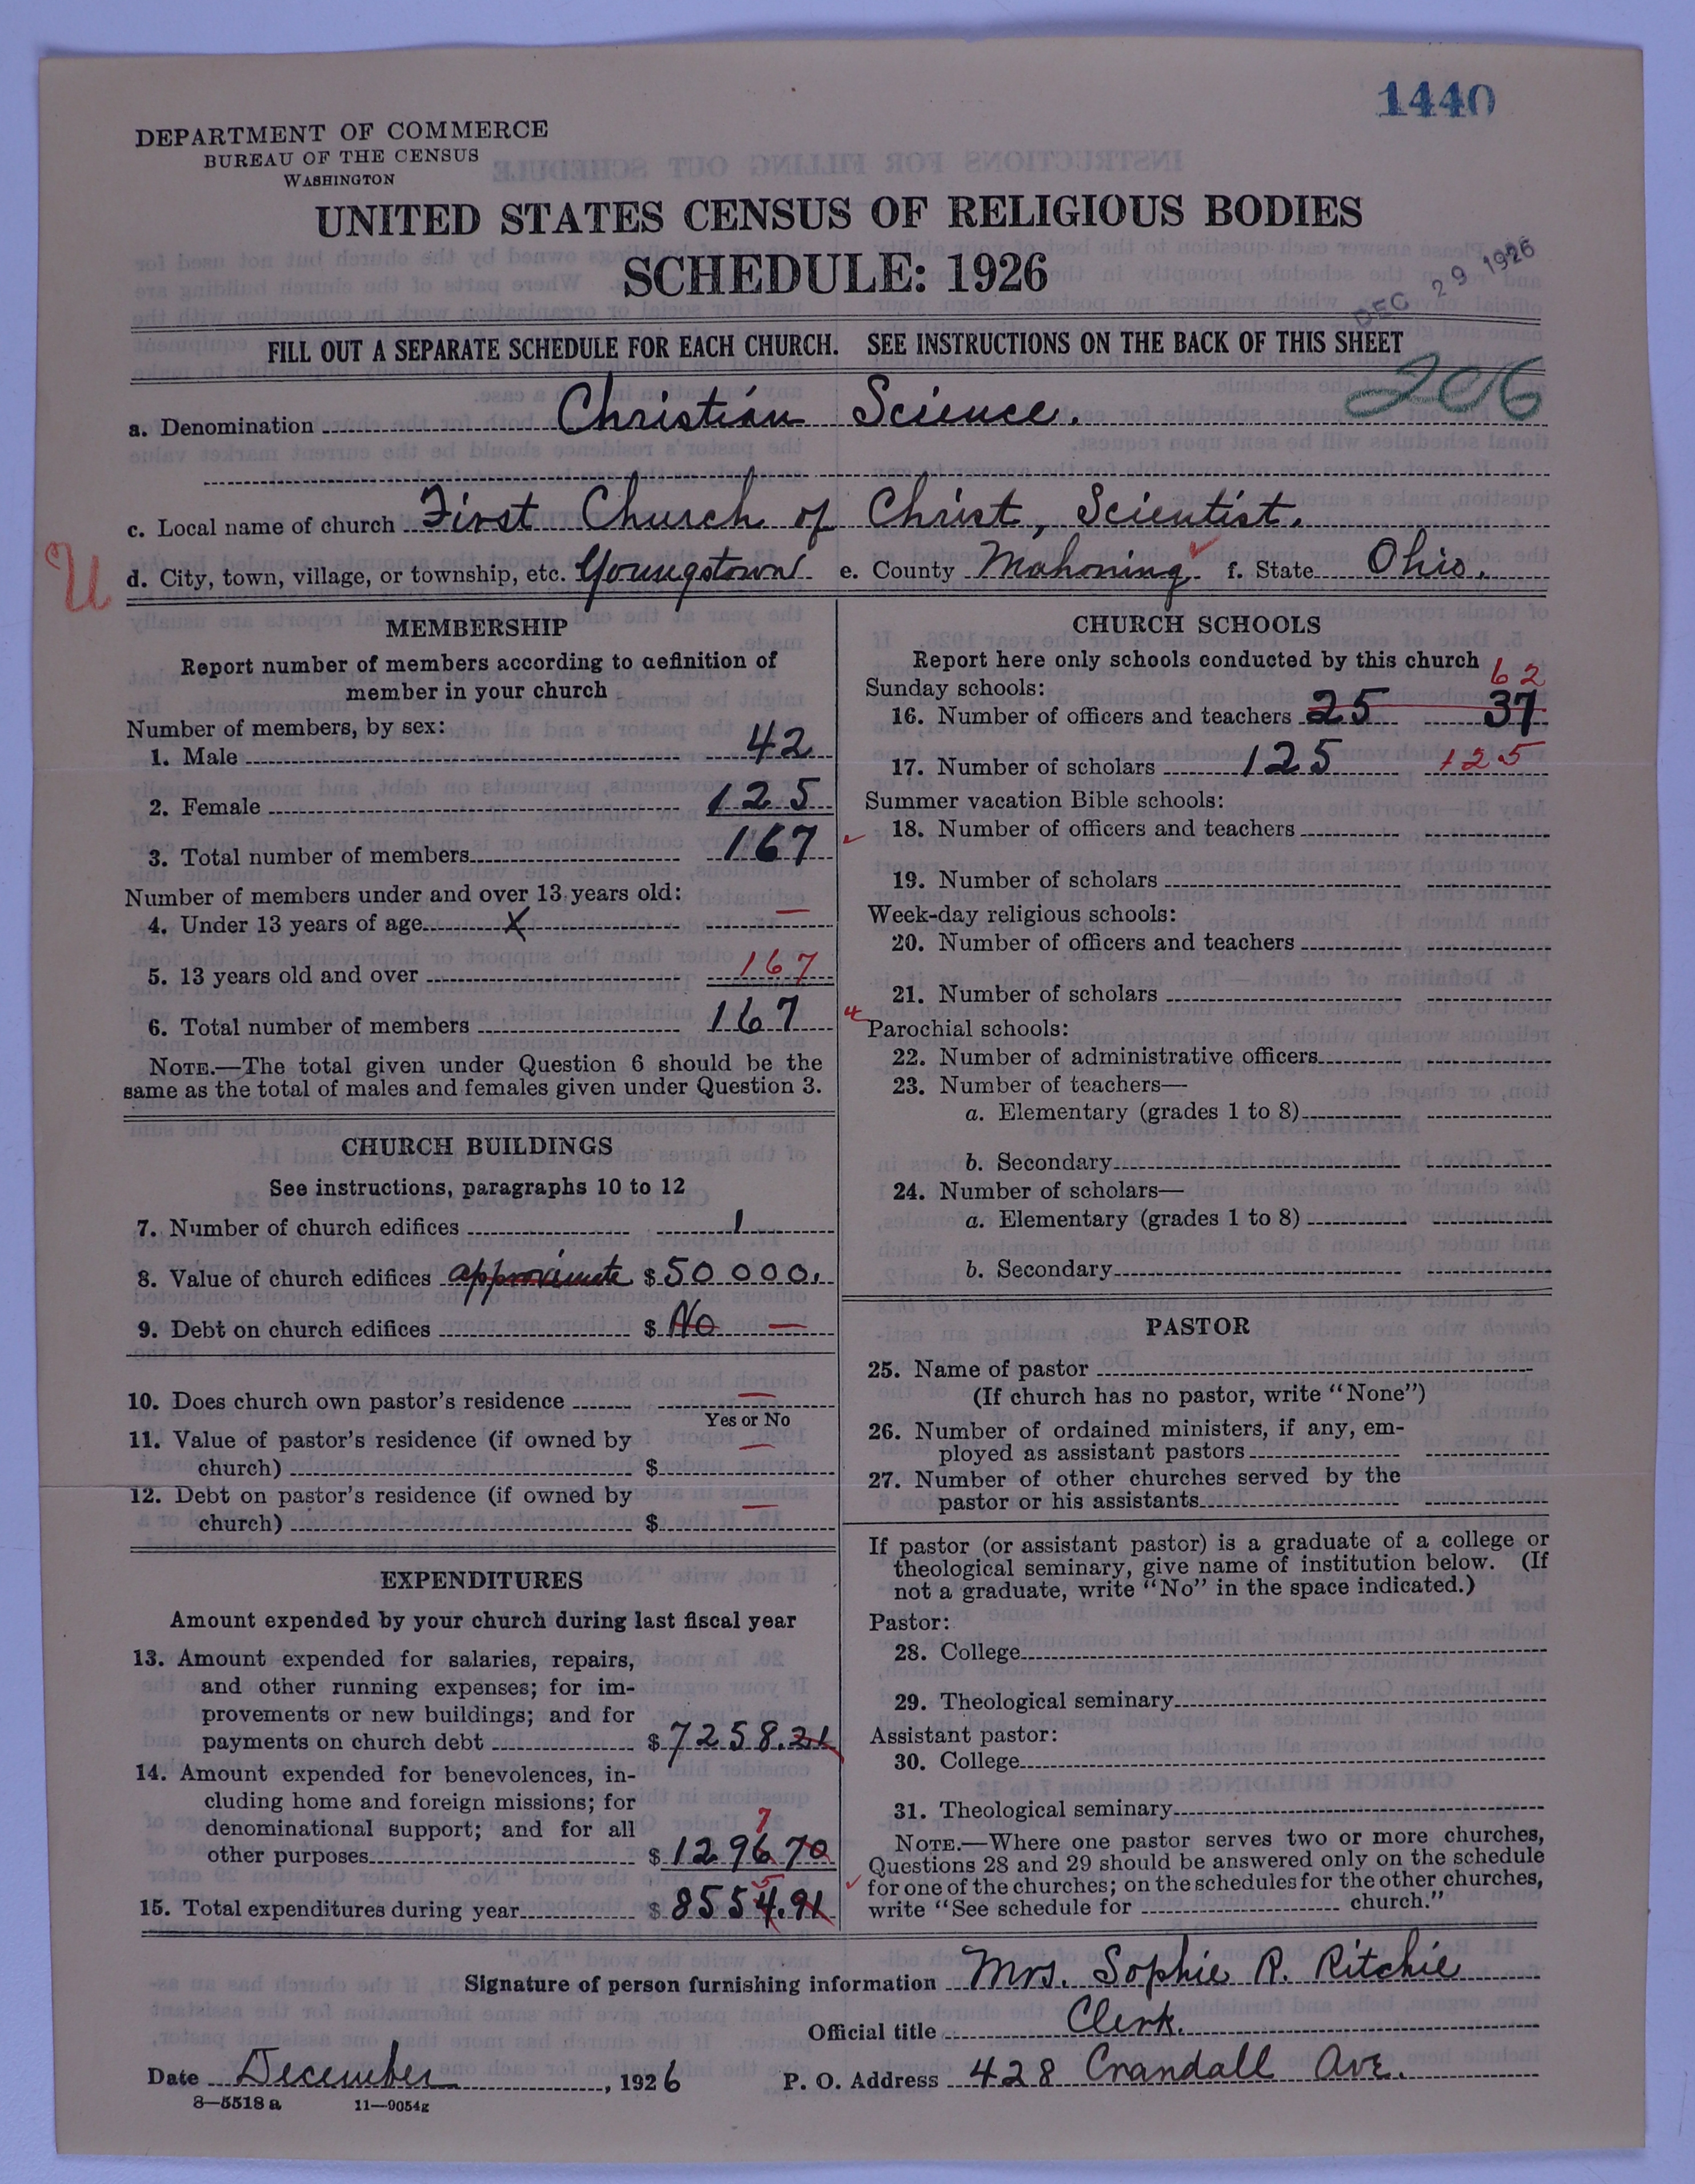 1440
DEPARTMENT OF COMMERCE
BUREAU OF THE CENSUS
WASHINGTON
UNITED STATES CENSUS OF RELIGIOUS BODIES
SCHEDULE: 1926
DEC 29 1926
FILL OUT A SEPARATE SCHEDULE FOR EACH CHURCH. SEE INSTRUCTIONS ON THE BACK OF THIS SHEET
206
a. Denomination Christian Science.
c. Local name of church First Church of Christ, Scientist.
U
d. City, town, village, or township, etc. Youngstown e. County Mahoning f. State Ohio.
MEMBERSHIP
Report number of members according to definition of
member in your church
Number of members, by sex:
1. Male 42
2. Female 125
3. Total number of members 167
Number of members under and over 13 years old:
4. Under 13 years of age X —
5. 13 years old and over 167
6. Total number of members 167
NOTE.—The total given under Question 6 should be the
same as the total of males and females given under Question 3.
CHURCH BUILDINGS
See instructions, paragraphs 10 to 12
7. Number of church edifices 1
8. Value of church edifices approximate $ 50 000.
9. Debt on church edifices $ No —
10. Does church own pastor's residence —
Yes or No
11. Value of pastor's residence (if owned by
church) $ —
12. Debt on pastor's residence (if owned by
church) $ —
EXPENDITURES
Amount expended by your church during last fiscal year
13. Amount expended for salaries, repairs,
and other running expenses; for im-
provements or new buildings; and for
payments on church debt $ 7258.21
14. Amount expended for benevolences, in-
cluding home and foreign missions; for
denominational support; and for all
7
other purposes $ 1296 70
5
15. Total expenditures during year $ 8554.91
CHURCH SCHOOLS
Report here only schools conducted by this church
62
Sunday schools:
16. Number of officers and teachers 25 37
17. Number of scholars 125 125
Summer vacation Bible schools:
18. Number of officers and teachers
19. Number of scholars
Week-day religious schools:
20. Number of officers and teachers
21. Number of scholars
Parochial schools:
22. Number of administrative officers
23. Number of teachers—
a. Elementary (grades 1 to 8)
b. Secondary
24. Number of scholars—
a. Elementary (grades 1 to 8)
b. Secondary
PASTOR
25. Name of pastor
(If church has no pastor, write "None")
26. Number of ordained ministers, if any, em-
ployed as assistant pastors
27. Number of other churches served by the
pastor or his assistants
If pastor (or assistant pastor) is a graduate of a college or
theological seminary, give name of institution below. (If
not a graduate, write "No" in the space indicated.)
Pastor:
28. College
29. Theological seminary
Assistant pastor:
30. College
31. Theological seminary
NOTE.—Where one pastor serves two or more churches,
Questions 28 and 29 should be answered only on the schedule
for one of the churches; on the schedules for the other churches,
write "See schedule for church."
Signature of person furnishing information Mrs. Sophie R. Ritchie
Official title Clerk.
Date December, 1926 P. O. Address 428 Crandall Ave.
8—5518 a 11—9054g